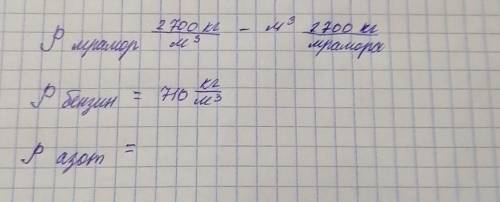 ρ мрамор 2700 кг/м³ - м³ 2700 кг/мрамора
ρ бензин = 710 кг/м³
ρ азот =